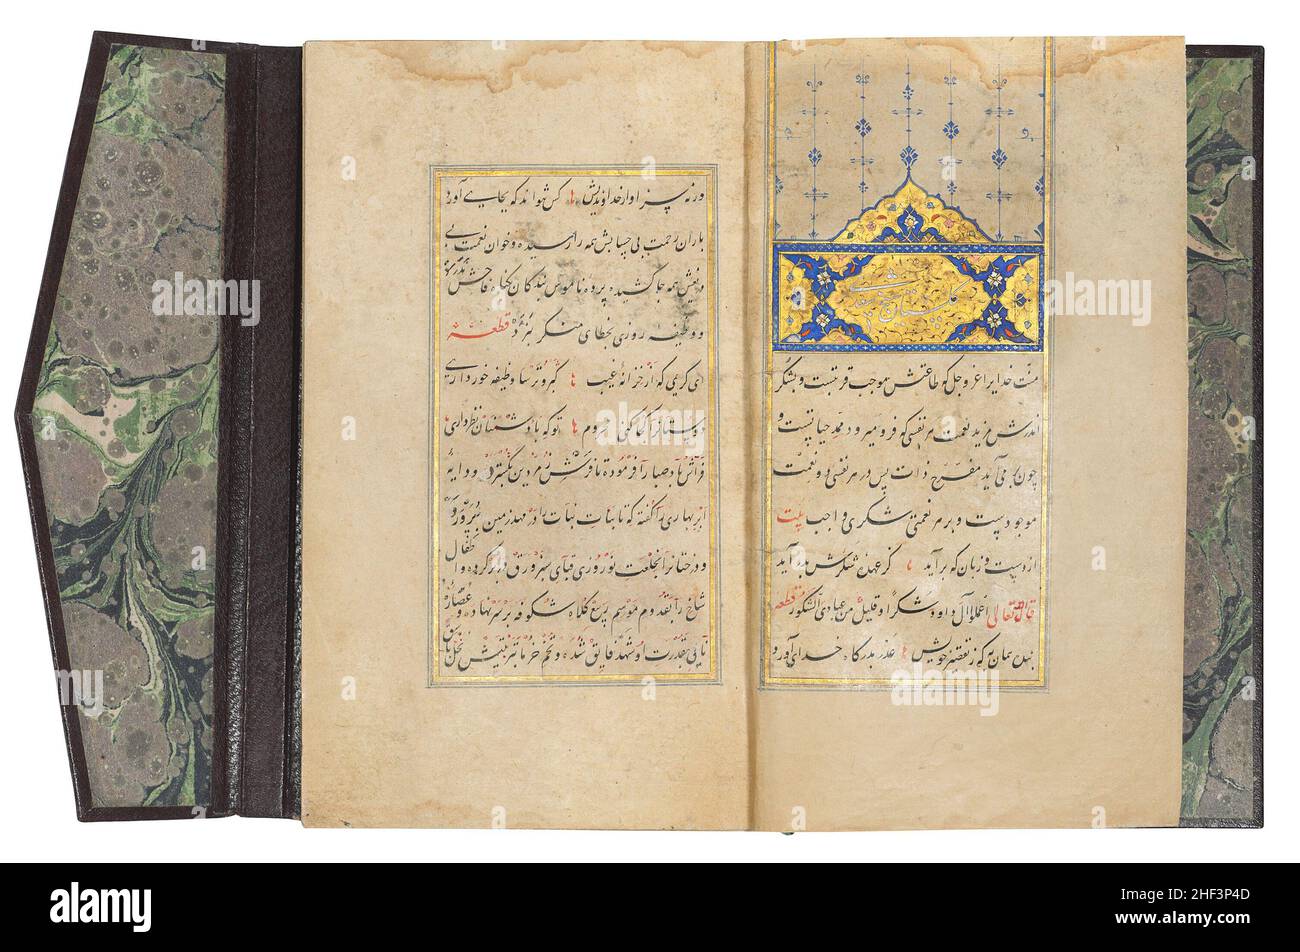 گلستان شیخ سعدی
منت خدایرا عز و جل که طاعتش موجب قربتست و بشکر
اندرش مزید نعمت هر نفسی که فرو میرود ممد حیاتست و
چون بر می آید مفرح ذات پس در هر نفسی دو نعمت
موجودست و بر هر نعمتی شکری واجب بیت
از دست و زبان که برآید کز عهده شکرش بدر آید
قال الله تعالی اعملوا آل داود شکرا و قلیل من عبادی الشکور قطعه
بنده همان به که ز تقصیر خویش عذر بدرگاه خدای آورد
ورنه سزاوار خداوندیش کس نتواند که بجای آورد
باران رحمت بی حسابش همه را رسیده و خوان نعمت بی
دریغش همه جا کشیده پرده ناموس بندگان بگناه فاحش ندرد
و وظیفه روزی بخطای منکر نبرد قطعه
ای کریمی که از خزانه غیب گبر و ترسا وظیفه خور داری
دوستانرا کجا کنی محروم تو که با دشمنان نظر داری
فراش باد صبا را فرموده تا فرش زمردین بگسترد و دایه
ابر بهاری را گفته که تا بنات نبات در مهد زمین بپرورد
و درختانرا بخلعت نوروزی قبای سبز ورق در بر کرده و اطفال
شاخ را بقدوم موسم ربیع کلاه شکوفه بر سر نهاده و عصاره
نایی بقدرت او شهد فایق شده و تخم خرما بتربیتش نخل باسق
alamy
Image ID: 2HF3P4D
www.alamy.com